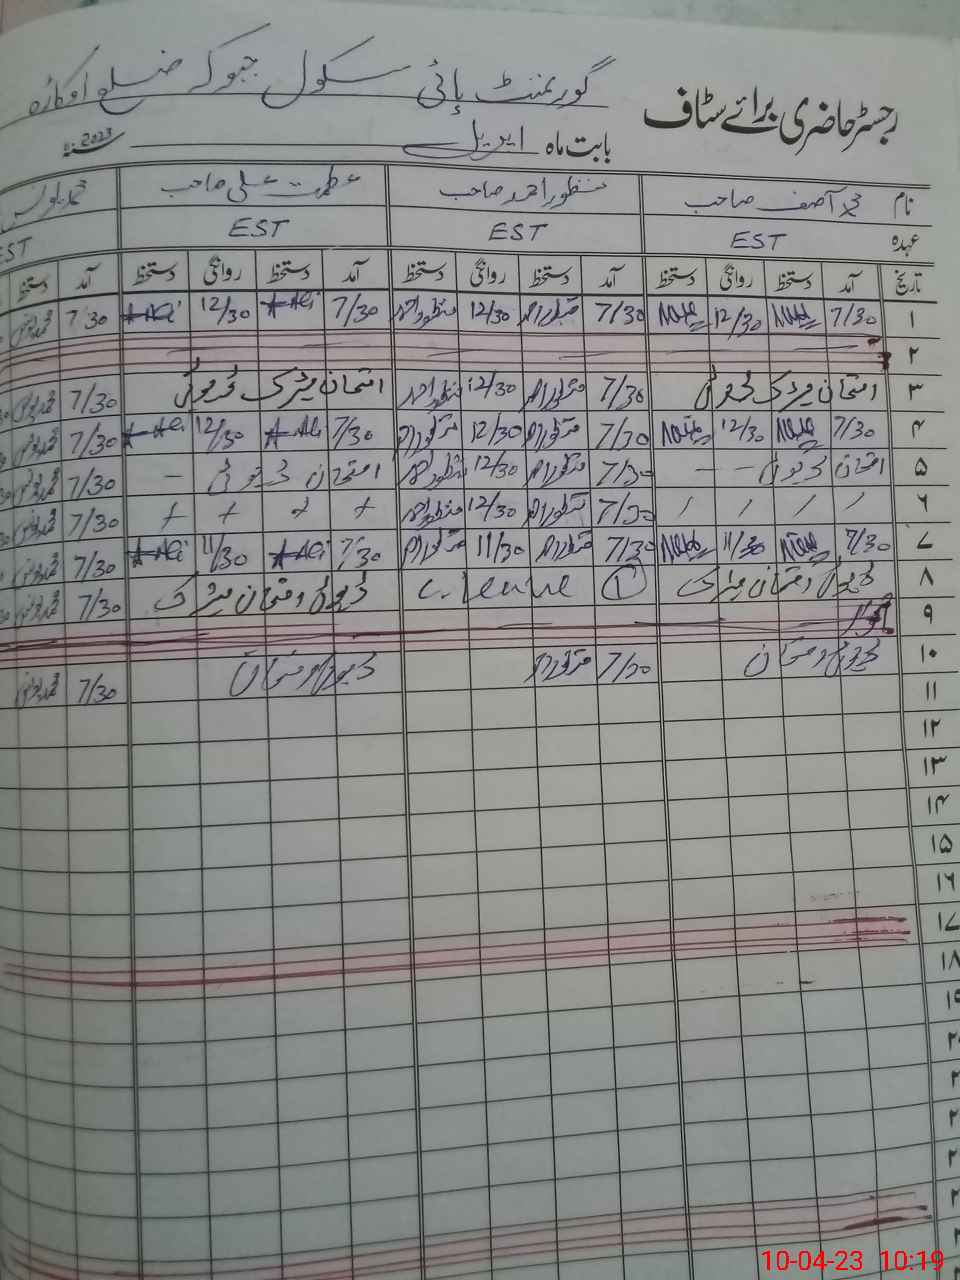 گورنمنٹ ہائی سکول جبوکہ ضلع اوکاڑہ
رجسٹر حاضری برائے سٹاف
بابت ماہ اپریل سنہ 2023
نام محمد آصف صاحب منظور احمد صاحب عظمت علی صاحب
عہدہ EST EST EST EST
تاریخ آمد دستخط روانگی دستخط آمد دستخط روانگی دستخط آمد دستخط روانگی دستخط آمد دستخط
۱ 7/30 12/30 7/30 منظور احمد 12/30 منظور احمد 7/30 A Ali 12/30 A Ali 7/30
۲
۳ امتحان میٹرک ڈیوٹی 7/30 منظور احمد 12/30 منظور احمد امتحان میٹرک ڈیوٹی 7/30
۴ 7/30 12/30 7/30 منظور احمد 12/30 منظور احمد 7/30 A Ali 12/30 A Ali 7/30
۵ امتحان ڈیوٹی - - 7/30 منظور احمد 12/30 منظور احمد امتحان ڈیوٹی - 7/30
۶ / / / / 7/30 منظور احمد 12/30 منظور احمد 7/30
۷ 7/30 11/30 7/30 منظور احمد 11/30 منظور احمد 7/30 A Ali 11/30 A Ali 7/30
۸ ڈیوٹی امتحان میٹرک ① C. leave ڈیوٹی امتحان میٹرک 7/30
۹ اتوار
۱۰ ڈیوٹی امتحان 7/30 منظور احمد ڈیوٹی امتحان 7/30
۱۱
۱۲
۱۳
۱۴
۱۵
۱۶
۱۷
۱۸
10-04-23 10:19